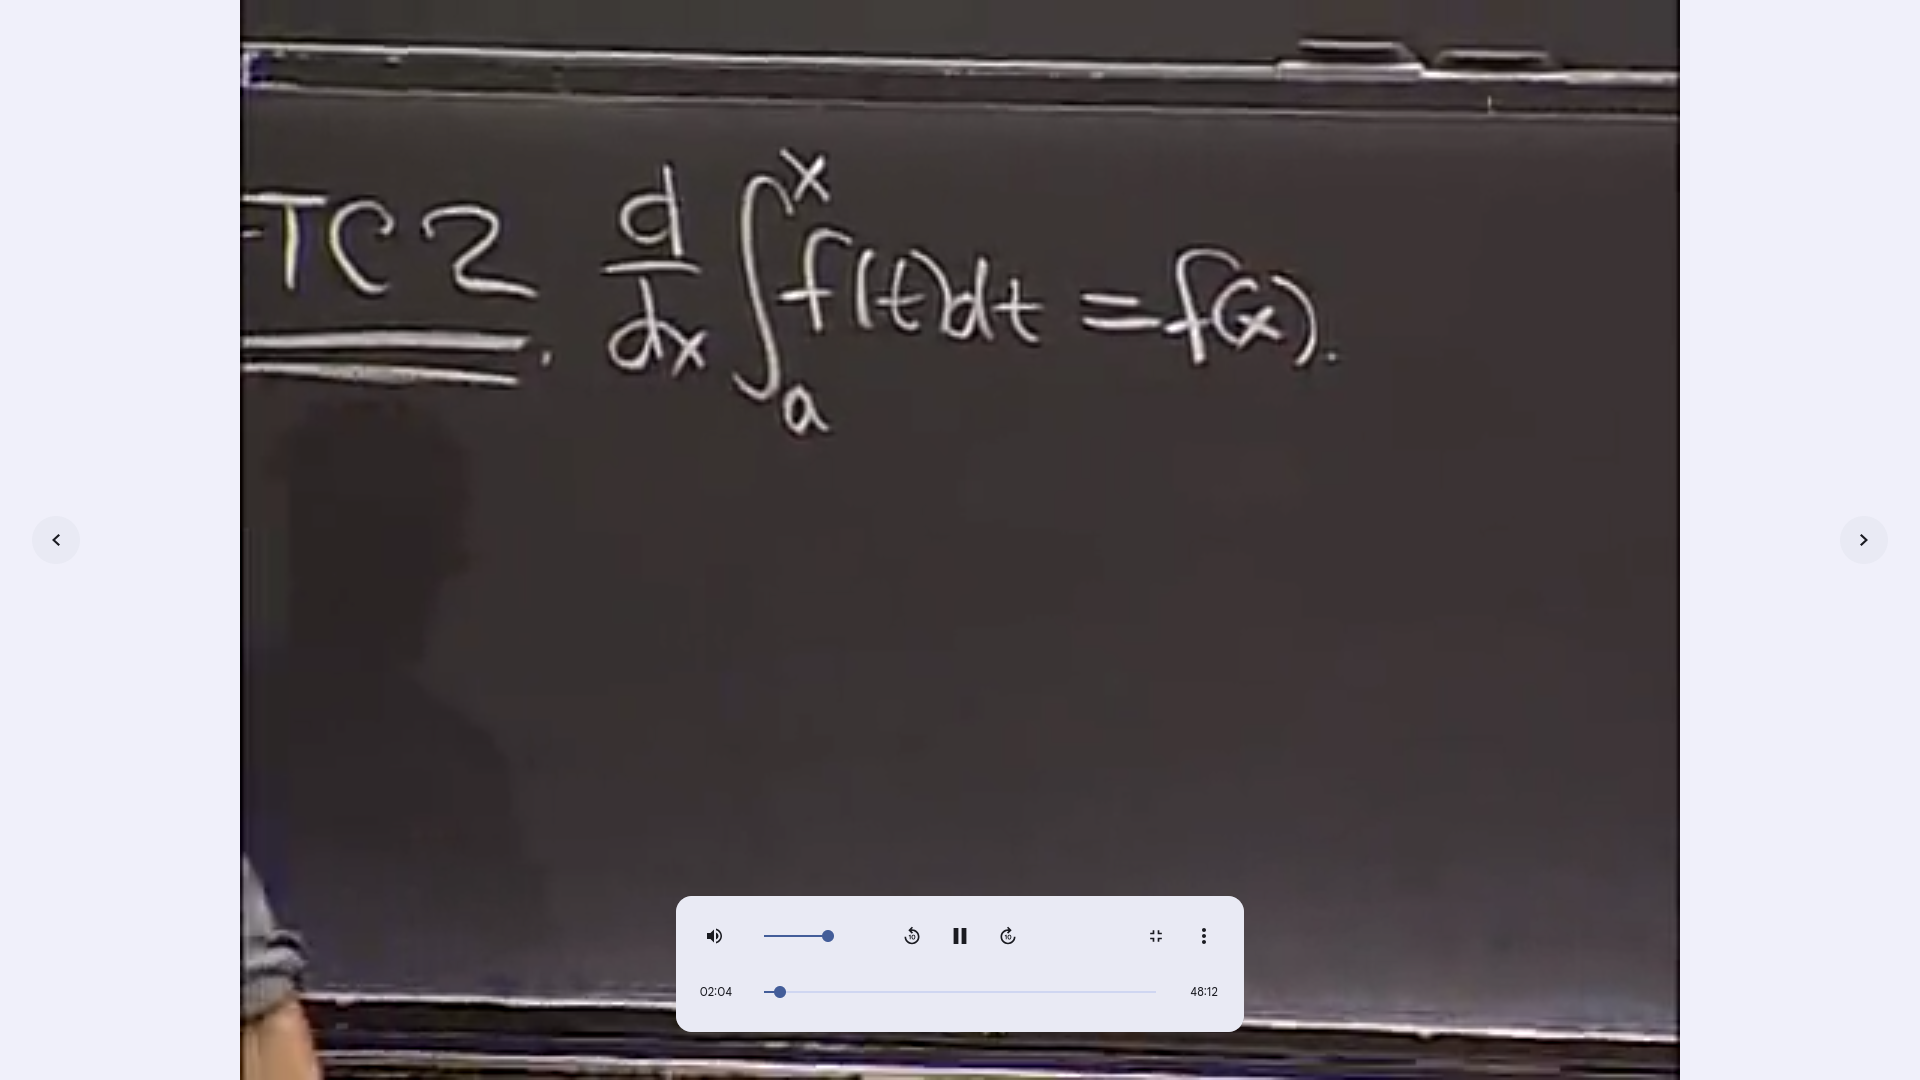 FTC2. d/dx ∫ₐˣ f(t)dt = f(x).
02:04 48:12